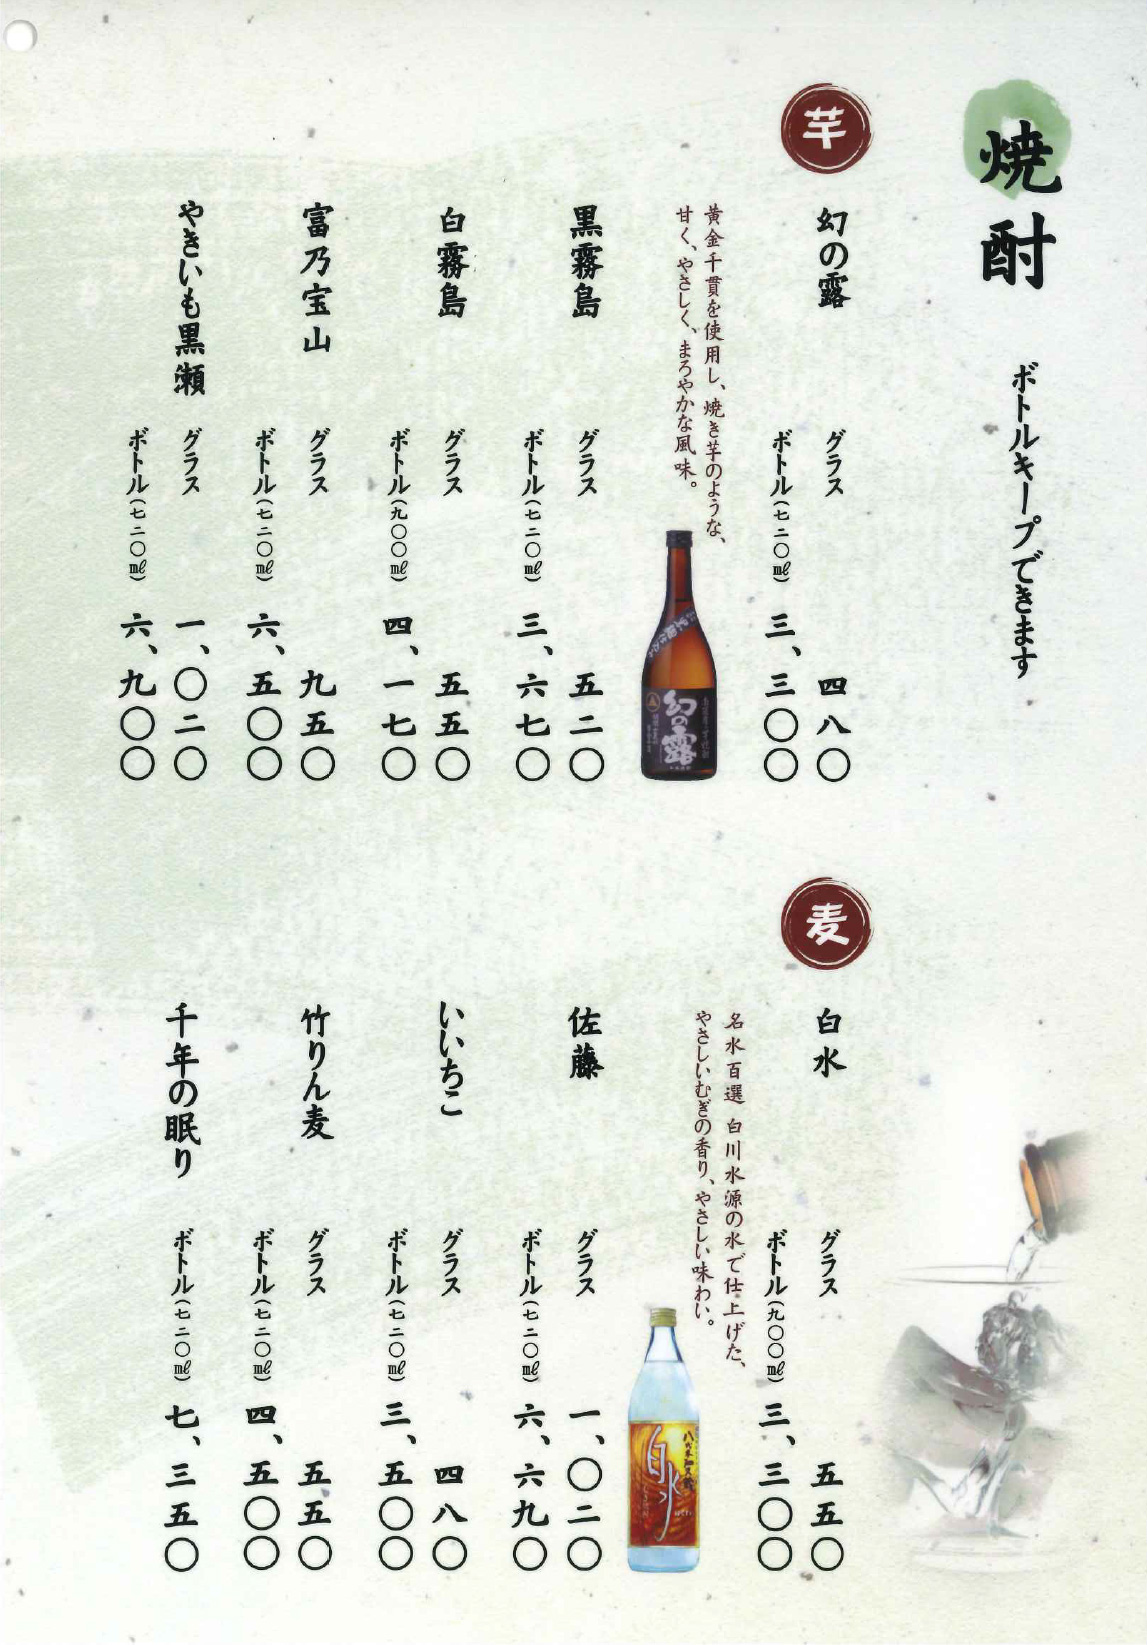 焼酎
ボトルキープできます
芋
幻の露
グラス 四八〇
ボトル(七二〇㎖) 三、三〇〇
黄金千貫を使用し、焼き芋のような、
甘く、やさしく、まろやかな風味。
幻の露
黒霧島
グラス 五二〇
ボトル(七二〇㎖) 三、六七〇
白霧島
グラス 五五〇
ボトル(九〇〇㎖) 四、一七〇
富乃宝山
グラス 九五〇
ボトル(七二〇㎖) 六、五〇〇
やきいも黒瀬
グラス 一、〇二〇
ボトル(七二〇㎖) 六、九〇〇
麦
白水
グラス 五五〇
ボトル(九〇〇㎖) 三、三〇〇
名水百選 白川水源の水で仕上げた、
やさしいむぎの香り、やさしい味わい。
白水
佐藤
グラス 一、〇二〇
ボトル(七二〇㎖) 六、六九〇
いいちこ
グラス 四八〇
ボトル(七二〇㎖) 三、五〇〇
竹りん麦
グラス 五五〇
ボトル(七二〇㎖) 四、五〇〇
千年の眠り
ボトル(七二〇㎖) 七、三五〇